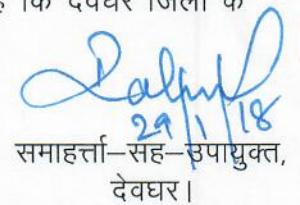 कि देवघर जिला के
29/1/18
समाहर्त्ता–सह–उपायुक्त,
देवघर।